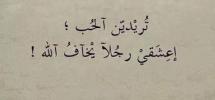 تُريْديّن آلحُب ؛
إعِشَقيْ رجُلآ يْخآفُ آلله !